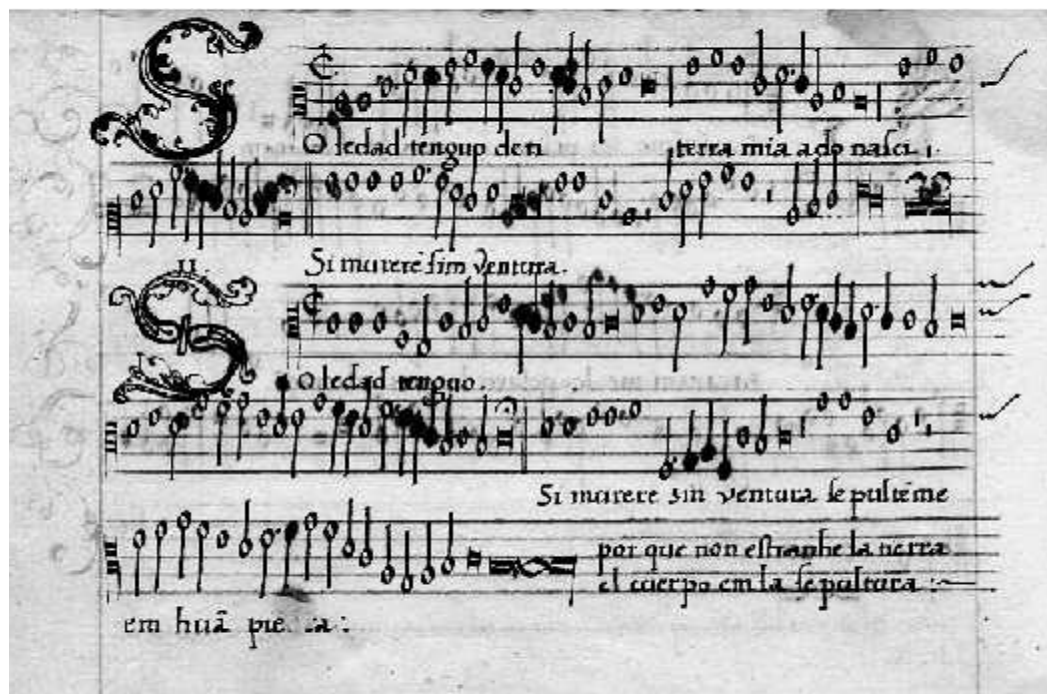 SOledad tenguo de ti terra mia ado nasci
Si murere sim ventura.
II.
SOledad tenguo.
Si murere sin ventura sepultẽme
por que non estranhe la tierra
el cuerpo em la sepultura :
em huã piedra :